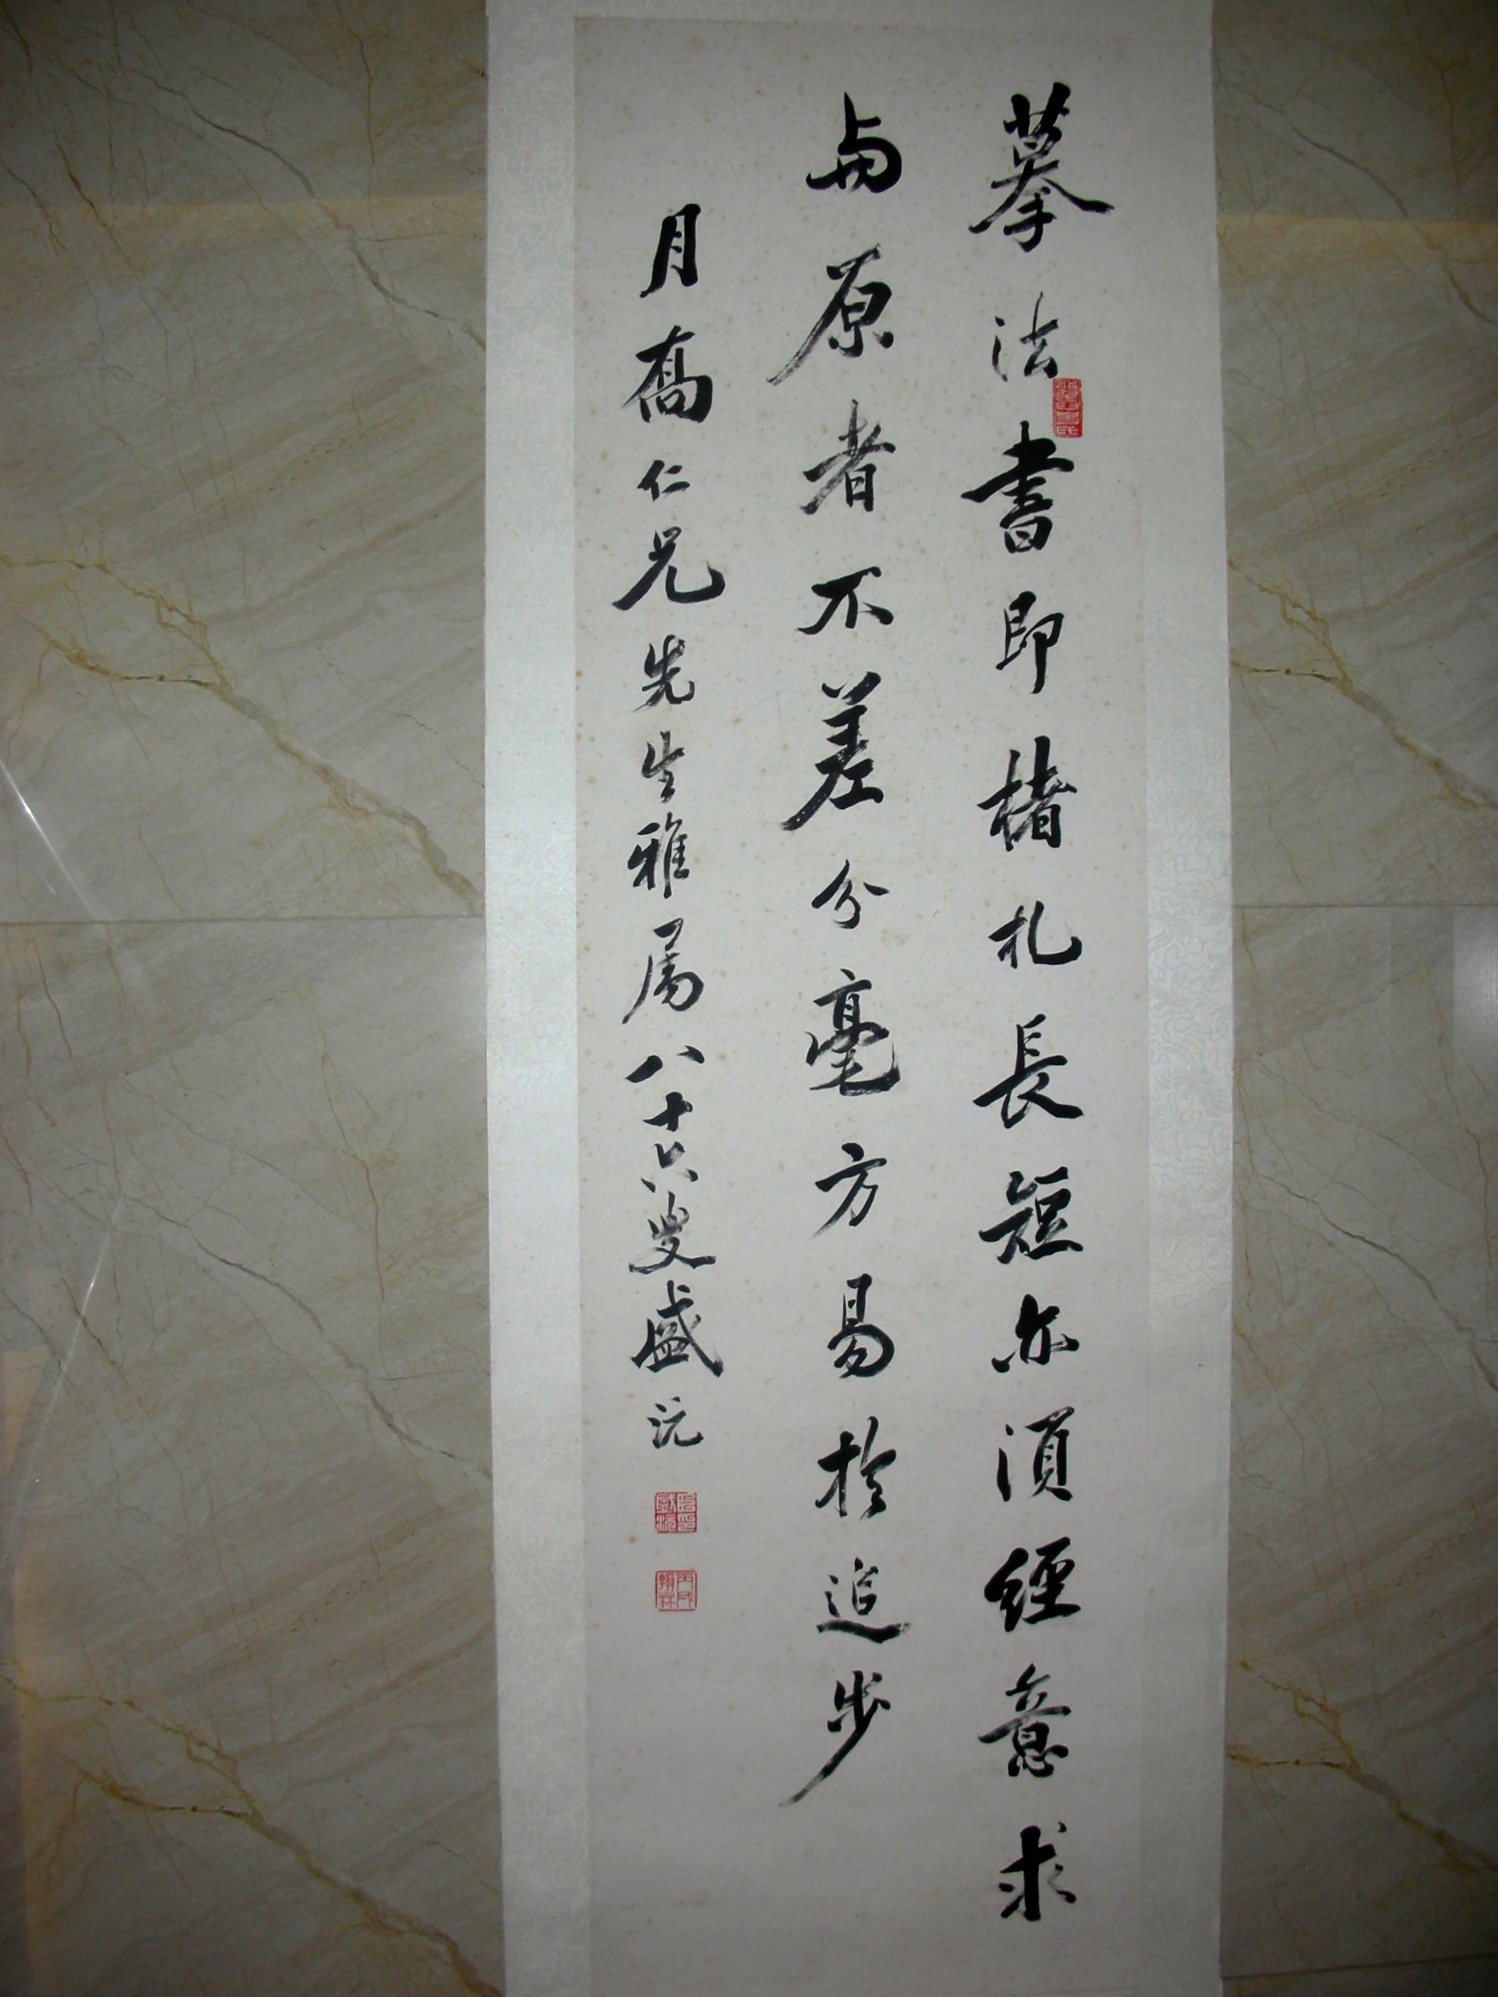 摹法書即楮札長短亦須經意求
與原者不差分毫方易於追步
月喬仁兄先生雅属八十六叟盛沅